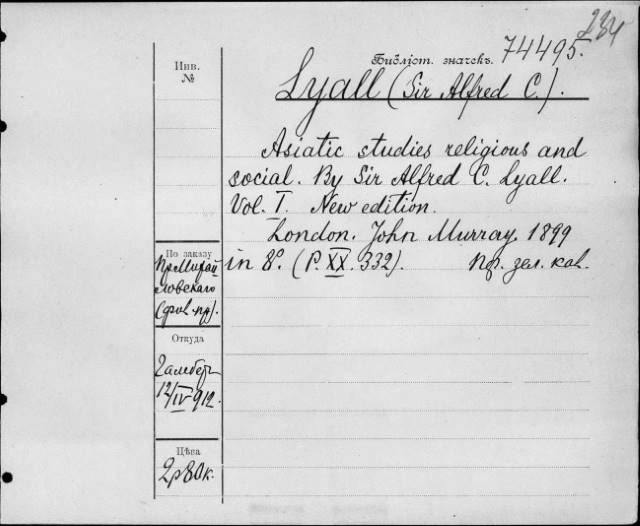 234
Библіот. значекъ. 74495.
Инв.
№
Lyall (Sir Alfred C.).
Asiatic studies religious and
social. By Sir Alfred C. Lyall.
Vol. I. New edition.
London. John Murray. 1899
in 8º. (P. XX. 332). Пр. зел. кав.
По заказу
Пр Михай
ловскаго
Откуда
12/IV 912.
Цѣна
2р80к.